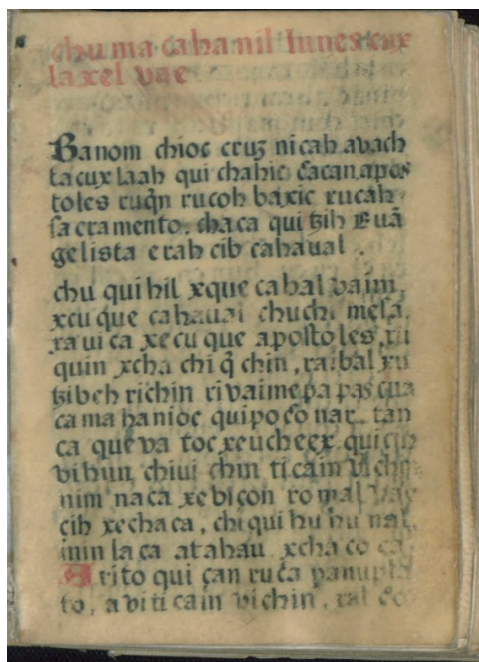 chu ma caha nil lunes cux
laxel vae
Banom chioc cruz nicah avach
tacux laah qui chahic cacan apos
toles ruqn rucoh baxic rucah
sacramento. chaca qui tzih Evā
gelista erah cib cahaual.
chu qui hil xque cahal vaim,
xcuque cahaual chuchi mesa,
xa vi ca xecuque apostoles, ru
quin xcha chi q̄ chin, raibal xu
tzibeh richin ri vaim pa pascua
ca mahanioc quipoconar. tan
ca que va toc xeucheex qui
vi hun chiui chin ti cain vi chin
nim naca xe bicon romal vae
cih xechaca, chi qui hu hu nal,
inin laca at ahau xcha co ca.
Arito qui can ruca panu
to, a viti cain vichin, ral co